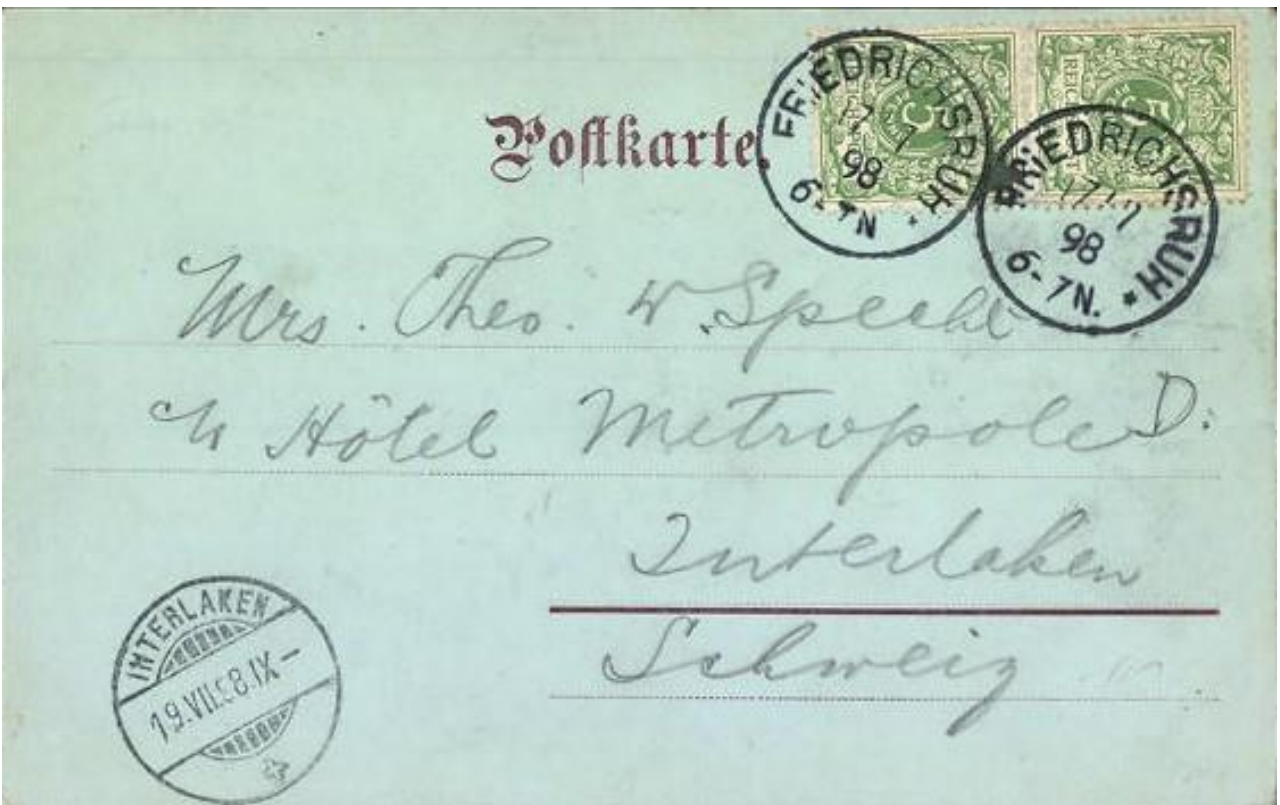 Postkarte.
FRIEDRICHSRUH *
17/7
98
6-7N.
FRIEDRICHSRUH *
17/7
98
6-7N.
5
REICH
5
Mrs. Theo. W. Specht
Hôtel Metropole D:
Interlaken
Schweiz
INTERLAKEN
19.VII.98.IX-